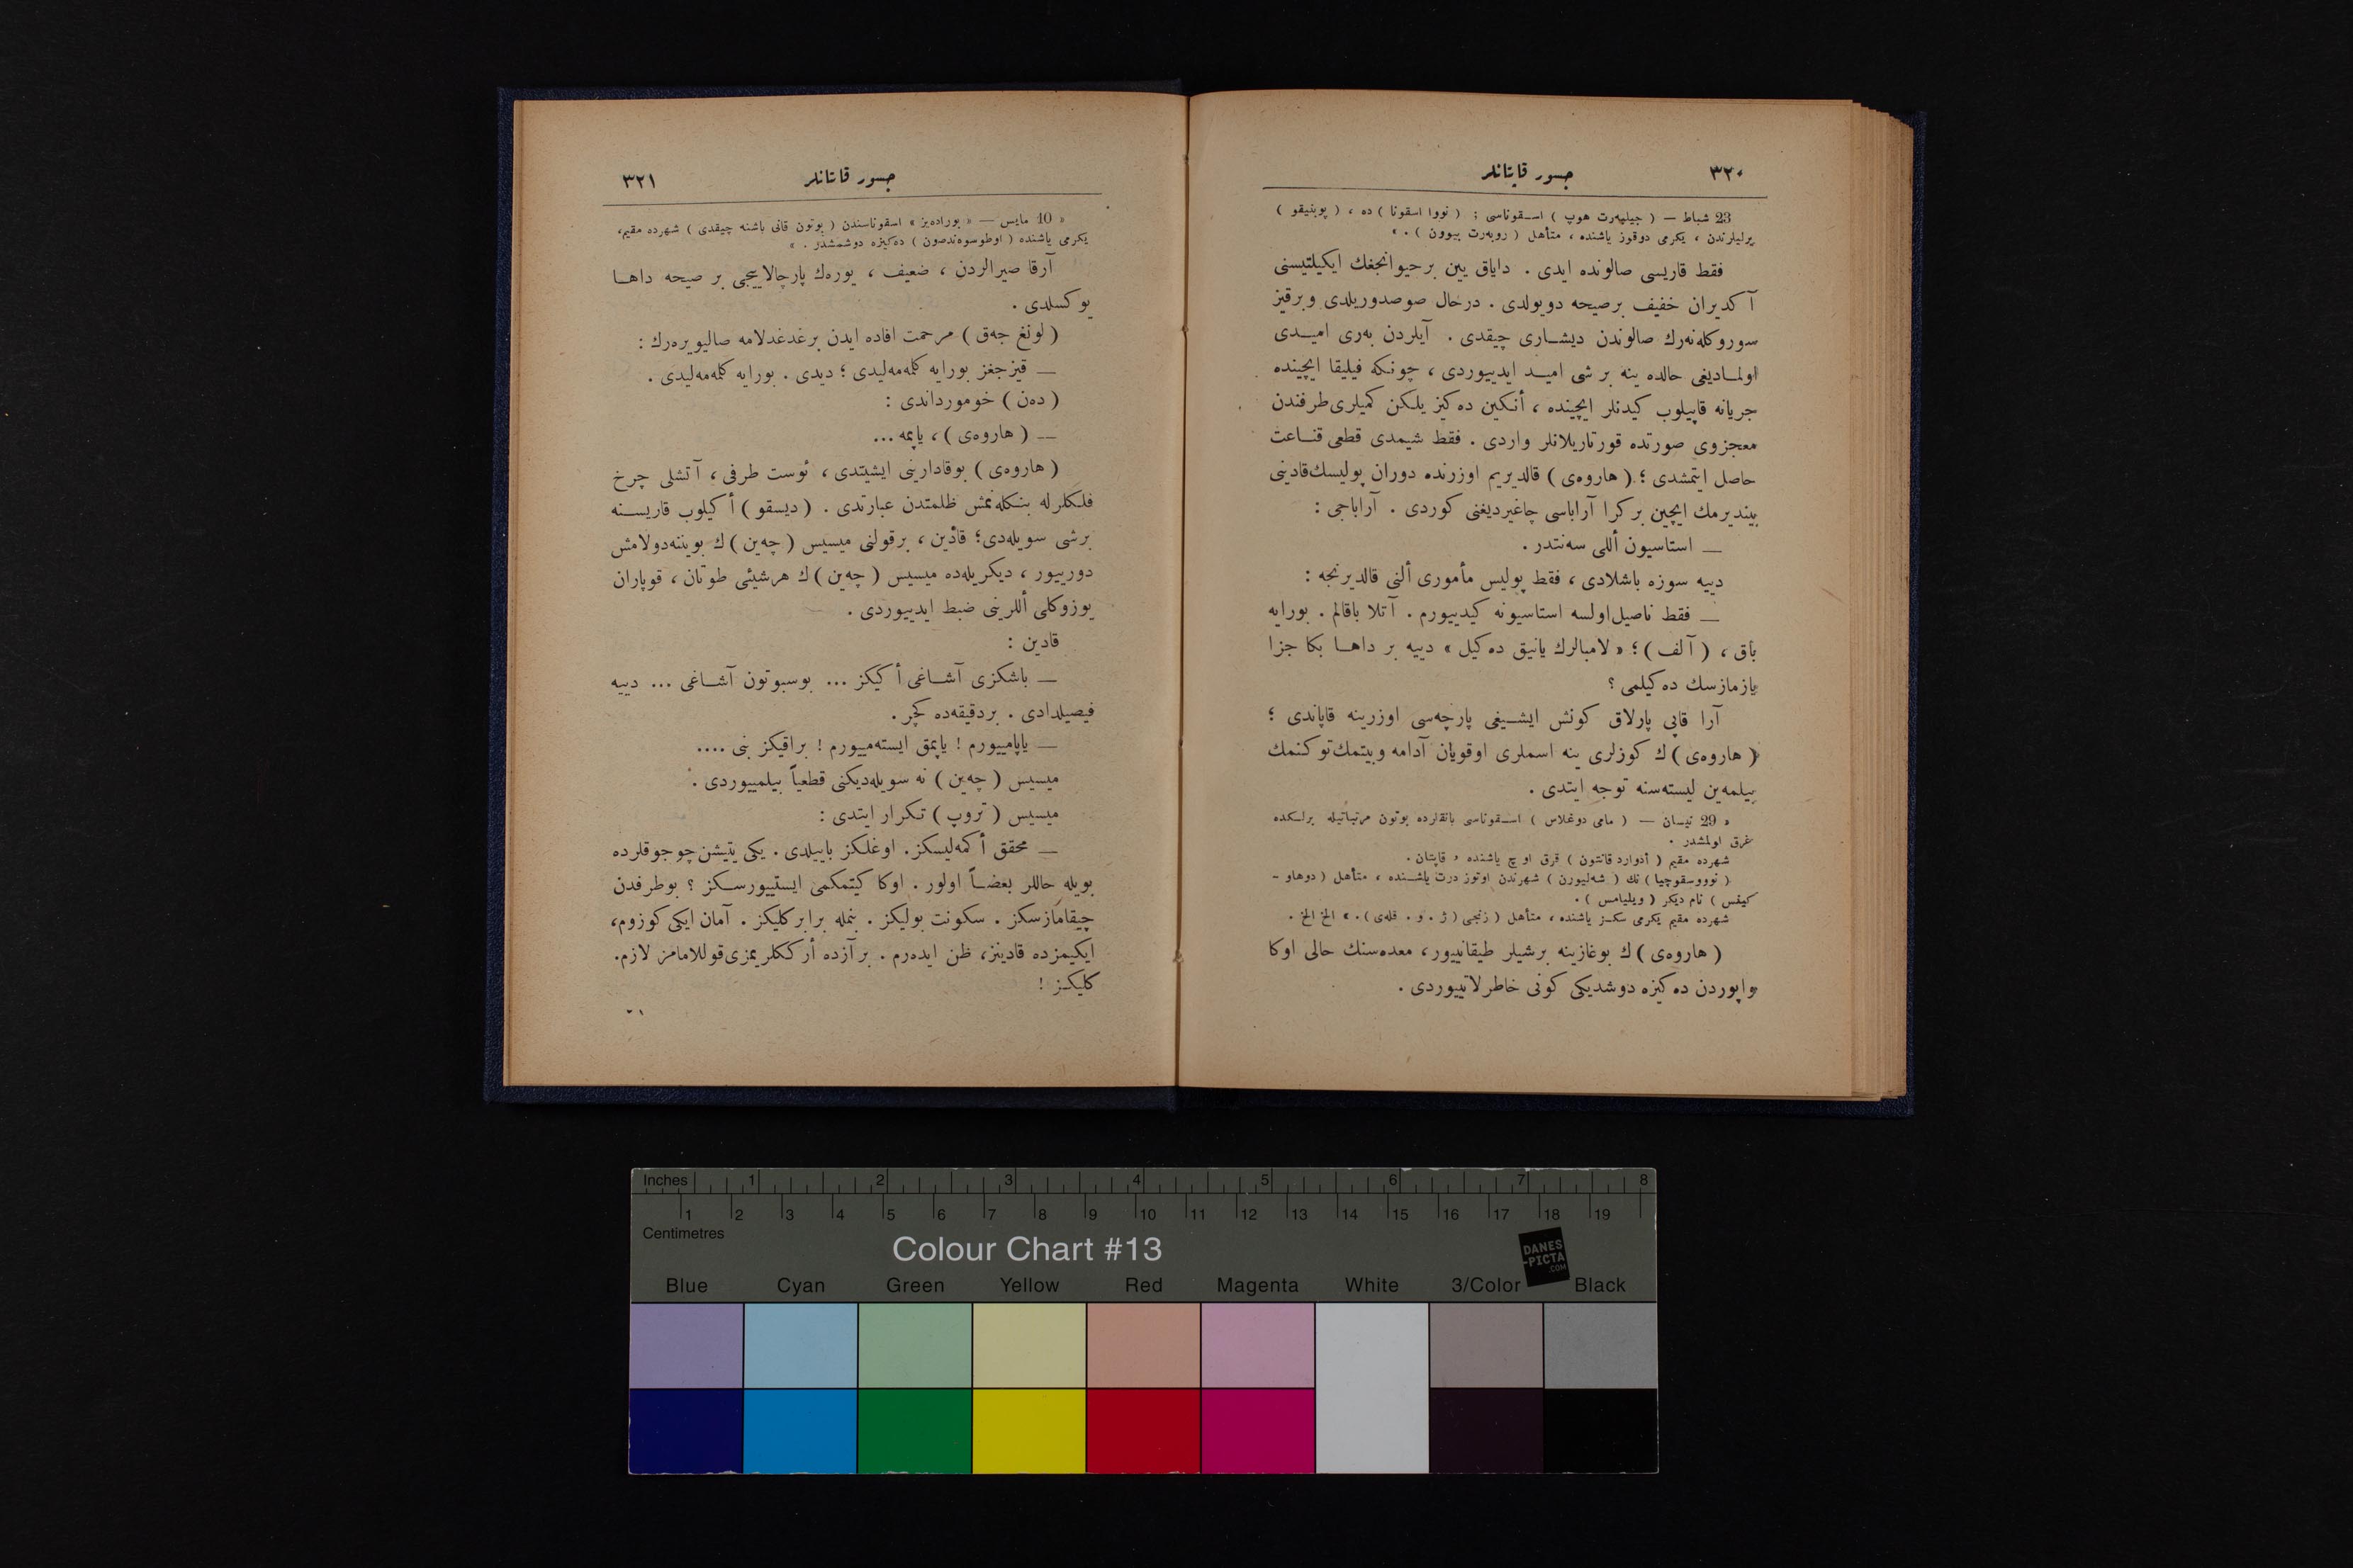 ٣٢٠
جسور قاپتانلر
23 شباط — ( جیلبەرت هوپ ) اسـقوناسی ; ( نووا اسقونا ) ده ، ( پوبنیقو )
یرلیلرندن ، یكرمی دوقوز یاشنده ، متأهل ( روبەرت بیوون ) . »
فقط قاریسی صالونده ایدی . دایاق یین برحیوانجغك ایكیلتیسنی
آكدیران خفیف برصیحه دویولدی . درحال صوصدوریلدی وبرقیز
سوروكله‌نه‌رك صالوندن دیشـاری چیقدی . آیلردن به‌ری امیـدی
اولمـادیغی حالده ینه بر شی امیـد ایدییوردی ، چونكه فیلیقا ایچینده
جریانه قاپیلوب كیدنلر ایچینده ، أنكین ده‌كیز یلكن كمیلری طرفندن
معجزوی صورتده قورتاریلانلر واردی . فقط شیمدی قطعی قنـاعت
حاصل ایتمشدی ؛ ( هاروه‌ی ) قالدیریم اوزرنده دوران پولیسك قادینی
بیندیرمك ایچین بر كرا آراباسی چاغیردیغنی كوردی . آراباجی :
— استاسیون أللی سه‌نتدر .
دییه سوزه باشلادی ، فقط پولیس مأموری ألنی قالدیرنجه :
— فقط ناصیل اولسه استاسیونه كیدییورم . آتلا باقالم . بورایه
باق ، ( آلف ) ؛ « لامبالرك یانیق ده‌كیل » دییه بر داهـا بكا جزا
یازمازسك ده‌كیلمی ؟
آرا قاپی پارلاق كونش ایشـیغی پارچه‌سی اوزرینه قاپاندی ؛
( هاروه‌ی ) ك كوزلری ینه اسملری اوقویان آدامه وبیتمك توكنمك
بیلمه‌ین لیسته‌سنه توجه ایتدی .
« 29 نیسان — ( مامی دوغلاس ) اسـقوناسی بانقلرده بوتون مرتباتیله برلـكده
غرق اولمشدر .
شهرده مقیم ( أدوارد قانتون ) قرق اوچ یاشنده ، قاپتان .
( نوووسقوچیا ) نك ( شه‌لبورن ) شهرندن اوتوز درت یاشـنده ، متأهل ( دوهاو -
كیقس ) نام دیكر ( ویلیامس ) .
شهرده مقیم یكرمی سكـز یاشنده ، متأهل ( زنجی ( ژ . و . فله‌ی ) . » الخ الخ .
( هاروه‌ی ) ك بوغازینه برشیلر طیقانییور ، معده‌سنك حالی اوكا
واپوردن ده‌كیزه دوشدیكی كونی خاطرلاتییوردی .
جسور قاپتانلر
٣٢١
« 10 مایس — « بوراده‌یز » اسقوناسندن ( بوتون قانی باشنه چیقدی ) شهرده مقیم،
یكرمی یاشنده ( اوطوسوه‌ندصون ) ده‌كیزه دوشمشدر . »
آرقا صیرالردن ، ضعیف ، یوره‌ك پارچالاییجی بر صیحه داهـا
یوكسلدی .
( لونغ جه‌ق ) مرحمت افاده ایدن برغدغدلامه صالیویره‌رك :
— قیزجغز بورایه كلمه‌مه‌لیدی ؛ دیدی . بورایه كلمه‌مه‌لیدی .
( دەن ) خومورداندی :
— ( هاروه‌ی ) ، یاپمه ...
( هاروه‌ی ) بوقادارینی ایشیتدی ، ئوست طرفی ، آتشلی چرخ
فلكلرله بنـكله‌نمش ظلمتدن عبارتدی . ( دیسقو ) أكیلوب قاریسـنه
برشی سویله‌دی ؛ قادین ، برقولنی میسیس ( چه‌ین ) ك بویننه‌دولامش
دورییور ، دیكریله‌ده میسیس ( چه‌ین ) ك هرشیئی طوتان ، قوپاران
یوزوكلی أللرینی ضبط ایدییوردی .
قادین :
— باشكزی آشـاغی أكیكز ... بوسبوتون آشـاغی ... دییه
فیصیلدادی . بردقیقه‌ده كچر .
— یاپامییورم ! یاپمق ایسته‌مییورم ! براقیكز بنی ....
میسیس ( چه‌ین ) نه سویله‌دیكنی قطعیاً بیلمییوردی .
میسیس ( تروپ ) تكرار ایتدی :
— محقق أكمه‌لیسكز . اوغلـكز باییلدی . یكی یتیشن چوجوقلرده
بویله حاللر بعضـاً اولور . اوكا كیتمكمی ایستییورسـكز ؟ بوطرفدن
چیقامازسكز . سكونت بولیكز . بنمله برابر كلیكز . آمان ایكی كوزوم،
ایكیمزده قادینز، ظن ایده‌رم . برآزده أركـكلریمزی قوللامامز لازم.
كلیكـز !
Inches 1 2 3 4 5 6 7 8
1 2 3 4 5 6 7 8 9 10 11 12 13 14 15 16 17 18 19
Centimetres
Colour Chart #13
DANES
-PICTA
.COM
Blue Cyan Green Yellow Red Magenta White 3/Color Black